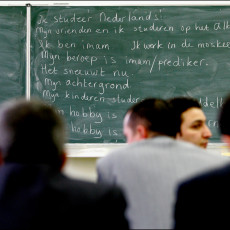 Ik Studeer Nederlands'
Mijn vrienden en ik studeren op het Alb
Ik ben imam Ik werk in de moskee
Mijn beroep is imam/prediker.
Het sneeuwt nu
Mijn achtergrond
Mijn kinderen studer
hobby is
hobby is